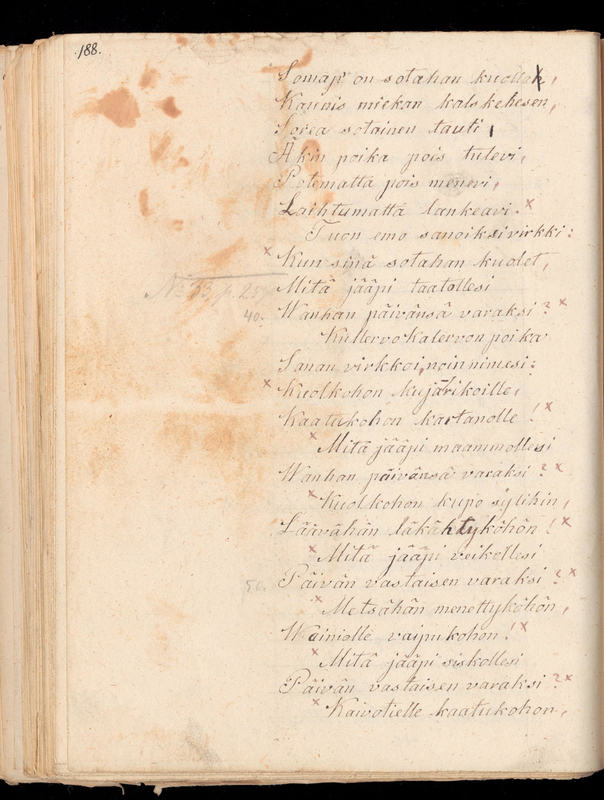 188.
Somap' on sotahan kuolla,
Kaunis miekan kalskehesen,
Sorea sotainen tauti,
Äkin poika pois tulevi,
Potematta pois menevi,
Laihtumatta lankeavi. x
Tuon emo sanoiksi virkki:
x Kun sinä sotahan kuolet,
Mitä jääpi taatollesi
40. Wanhan päivänsä varaksi? x
Kullervo Kalervon poika
Sanan virkkoi, noin nimesi:
x Kuolkohon kujärikoille,
Kaatukohon kartanolle! x
x Mitä jääpi maammollesi
Wanhan päivänsä varaksi? x
x Kuolkohon kupo sylihin,
Läävähän läkähtyköhön! x
x Mitä jääpi veikollesi
50. Päivän vastaisen varaksi? x
x Metsähän menettyköhön,
Wainiolle vaipukohon! x
x Mitä jääpi siskollesi
Päivän vastaisen varaksi? x
x Kaivotielle kaatukohon,